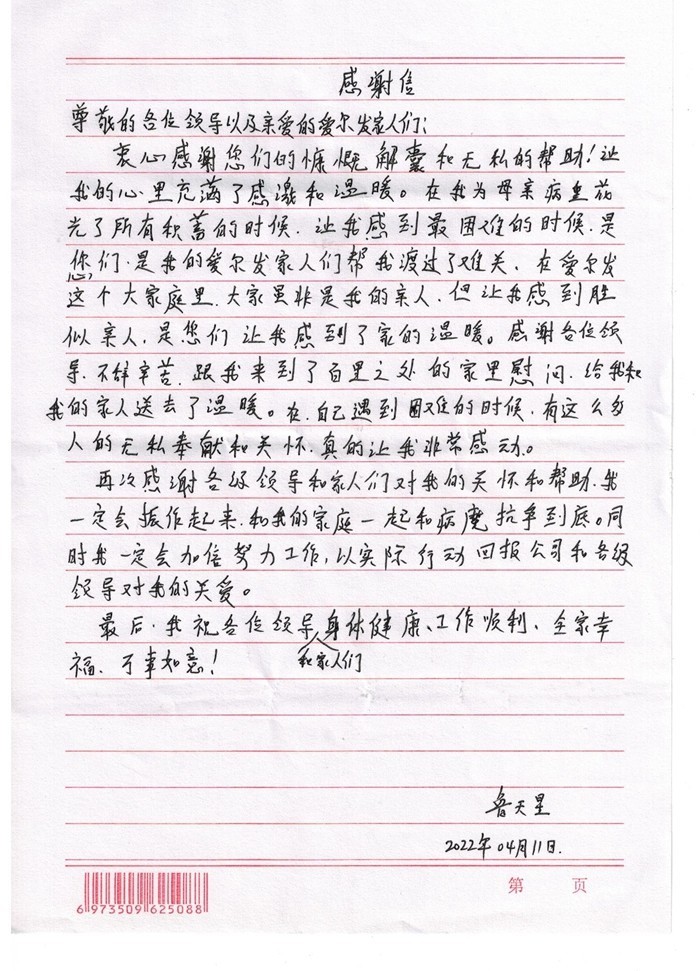 感谢信
尊敬的各位领导以及亲爱的爱尔发家人们：
衷心感谢您们的慷慨解囊和无私的帮助！让
我的心里充满了感激和温暖。在我为母亲病重花
光了所有积蓄的时候.让我感到最困难的时候.是
您们.是我的爱尔发家人们帮我渡过了难关、在爱尔发
这个大家庭里.大家虽非是我的亲人.但让我感到胜
似亲人.是您们让我感到了家的温暖。感谢各位领
导.不辞辛苦.跟我来到了百里之外的家里慰问.给我和
我的家人送去了温暖。在.自己遇到困难的时候.有这么多
人的无私奉献和关怀.真的让我非常感动。
再次感谢各级领导和家人们对我的关怀和帮助.我
一定会振作起来.和我的家庭一起和病魔抗争到底。同
时我一定会加倍努力工作,以实际行动回报公司和各级
领导对我的关爱。
最后.我祝各位领导身体健康、工作顺利、全家幸
和家人们
福、万事如意！
鲁天星
2022年04月11日.
6 973509 625088
第 页